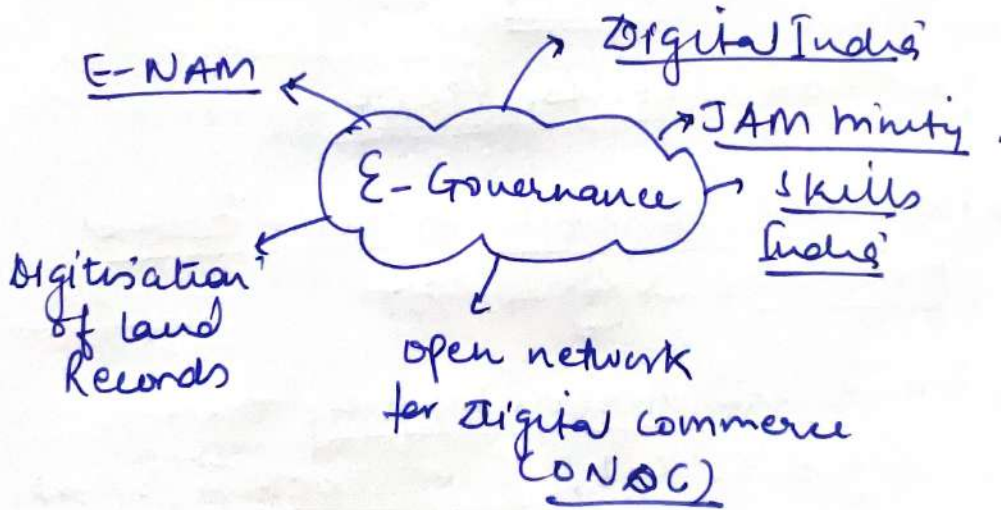 Digital India
E-NAM
JAM trinity
E-Governance
Skills
India
Digitisation
of land
Records
open network
for Digital commerce
(ONDC)